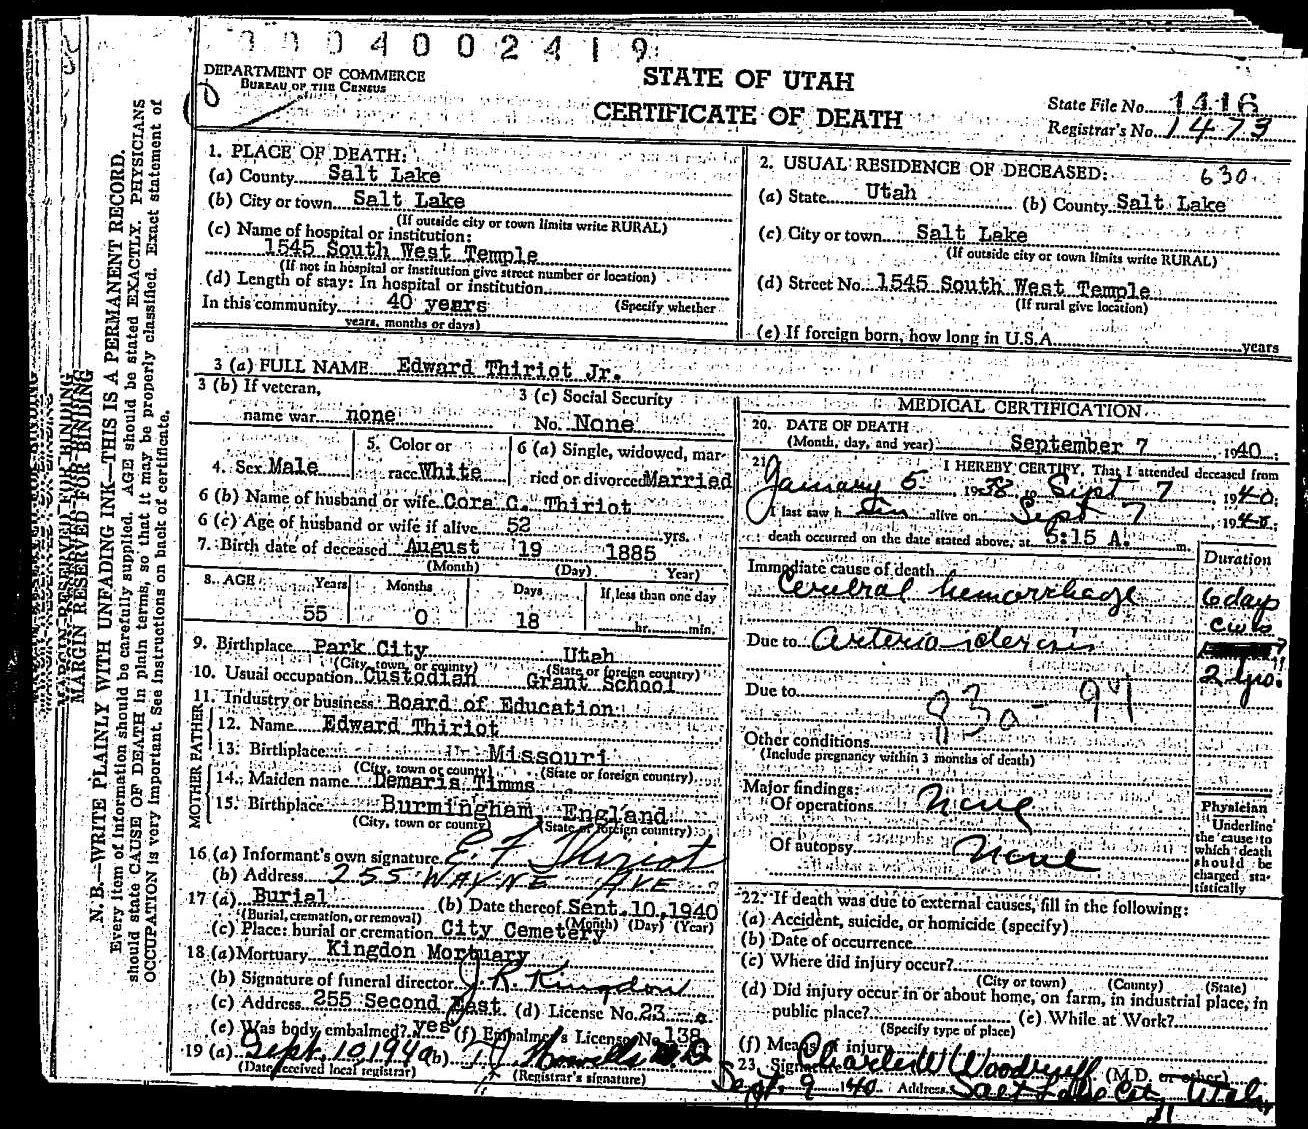 0004002419
DEPARTMENT OF COMMERCE
BUREAU OF THE CENSUS
STATE OF UTAH
CERTIFICATE OF DEATH
State File No. 1416
Registrar's No. 1473
1. PLACE OF DEATH:
(a) County Salt Lake
(b) City or town Salt Lake
(If outside city or town limits write RURAL)
(c) Name of hospital or institution:
1545 South West Temple
(If not in hospital or institution give street number or location)
(d) Length of stay: In hospital or institution
In this community 40 years (Specify whether
years, months or days)
2. USUAL RESIDENCE OF DECEASED: 630
(a) State Utah (b) County Salt Lake
(c) City or town Salt Lake
(If outside city or town limits write RURAL)
(d) Street No. 1545 South West Temple
(If rural give location)
(e) If foreign born, how long in U.S.A. years
3 (a) FULL NAME Edward Thiriot Jr.
3 (b) If veteran,
name war none
3 (c) Social Security
No. None
4. Sex Male
5. Color or
race White
6 (a) Single, widowed, mar-
ried or divorced Married
6 (b) Name of husband or wife Cora C. Thiriot
6 (c) Age of husband or wife if alive 52 yrs.
7. Birth date of deceased August 19 1885
(Month) (Day) Year)
8. AGE Years Months Days If less than one day
55 0 18 hr. min.
9. Birthplace Park City Utah
(City, town, or county) (State or foreign country)
10. Usual occupation Custodian Grant School
11. Industry or business Board of Education
FATHER
12. Name Edward Thiriot
13. Birthplace Missouri
(City, town or county) (State or foreign country)
MOTHER
14. Maiden name Demaris Timms
15. Birthplace Burmingham, England
(City, town or county) (State or foreign country)
16 (a) Informant's own signature E. F. Thiriot
(b) Address 255 WAYNE AVE
17 (a) Burial (b) Date thereof Sept. 10, 1940
(Burial, cremation, or removal) (Month) (Day) (Year)
(c) Place: burial or cremation City Cemetery
18 (a) Mortuary Kingdon Mortuary
(b) Signature of funeral director J. R. Kingdon
(c) Address 255 Second East (d) License No. 23
(e) Was body embalmed? yes (f) Embalmer's License No. 138
19 (a) Sept. 10, 1940 (b) Howells M.D
(Date received local registrar) (Registrar's signature)
MEDICAL CERTIFICATION
20. DATE OF DEATH
(Month, day, and year) September 7, 1940.
21 I HEREBY CERTIFY, That I attended deceased from
January 5, 1938 to Sept 7 1940;
I last saw h im alive on Sept 7, 1940;
death occurred on the date stated above, at 5:15 A. m.
Duration
Immediate cause of death
Cerebral hemorrhage 6 days
Due to Arteriosclerosis
2 yrs.
Due to
830- 94
Other conditions
(Include pregnancy within 3 months of death)
Major findings:
Of operations None
Of autopsy None
Physician
Underline
the cause to
which death
should be
charged sta-
tistically
22. If death was due to external causes, fill in the following:
(a) Accident, suicide, or homicide (specify)
(b) Date of occurrence
(c) Where did injury occur?
(City or town) (County) (State)
(d) Did injury occur in or about home, on farm, in industrial place, in
public place? (e) While at Work?
(Specify type of place)
(f) Means of injury
23. Signature Charles W Woodruff (M.D. or other)
Sept. 9 1940 Address Salt Lake City Utah
MARGIN RESERVED FOR BINDING
N. B.—WRITE PLAINLY WITH UNFADING INK—THIS IS A PERMANENT RECORD.
Every item of information should be carefully supplied. AGE should be stated EXACTLY. PHYSICIANS
should state CAUSE OF DEATH in plain terms, so that it may be properly classified. Exact statement of
OCCUPATION is very important. See instructions on back of certificate.